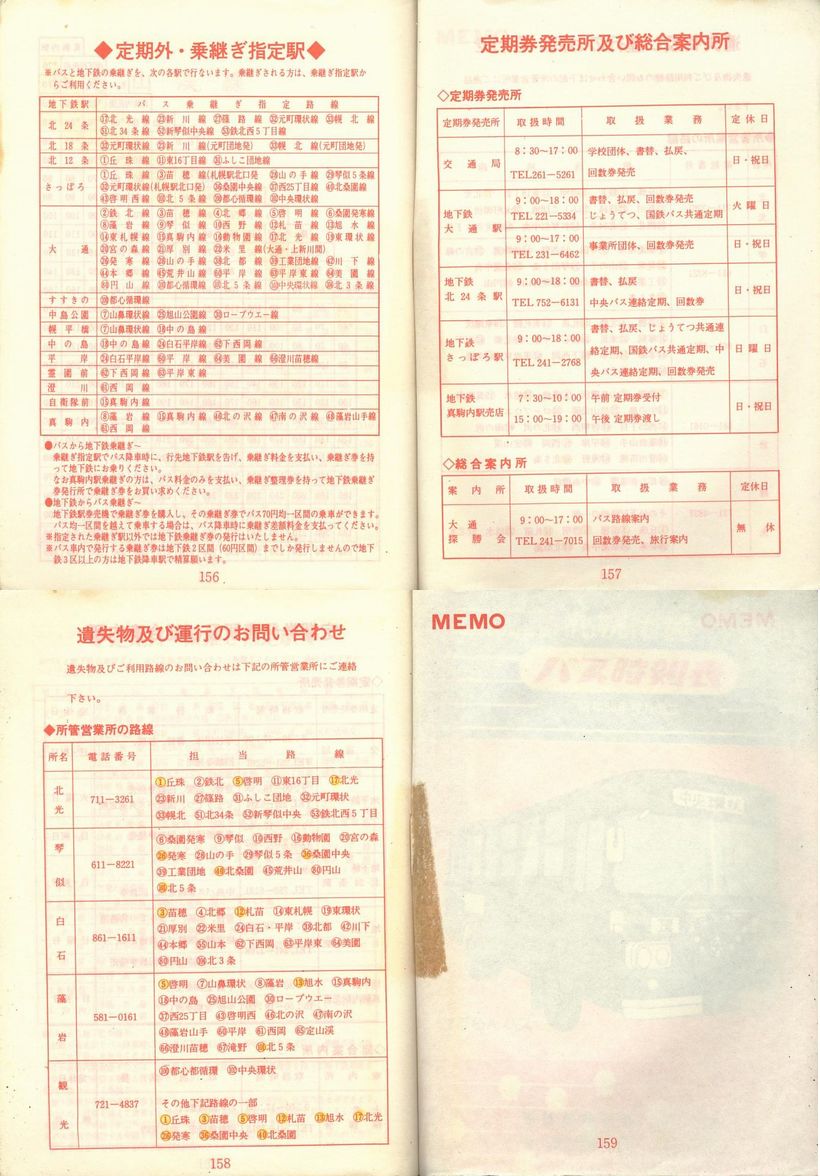 ◆定期外・乗継ぎ指定駅◆
※バスと地下鉄の乗継ぎを、次の各駅で行ないます。乗継ぎされる方は、乗継ぎ指定駅か
らご利用ください。
地下鉄駅 バス乗継ぎ指定路線
北24条 ⑰北光線 ㉓新川線 ㉗篠路線 ㉜元町環状線 ㉝幌北線
㊿北34条線 新琴似中央線 鉄北西5丁目線
北18条 ㉜元町環状線 ㉓新川線(元町団地発) ㉝幌北線(元町団地発)
北12条 ①丘珠線 ⑪東16丁目線 ㉛ふしこ団地線
さっぽろ ①丘珠線 ③苗穂線(札幌駅北口発 ㉘山の手線 ㉙琴似5条線
㉜元町環状線(札幌駅北口発) ㊱桑園中央線 ㊲西25丁目線 ㊵北桑園線
㊸啓明西線 北5条線 都心循環線 中央環状線
大通 ②鉄北線 ③苗穂線 ④北郷線 ⑤啓明線 ⑥桑園発寒線
⑧藻岩線 ⑨琴似線 ⑩西野線 ⑫札苗線 ⑬旭水線
⑭東札幌線 ⑮真駒内線 ⑯動物園線 ⑰北光線 ⑲東環状線
⑳宮の森線 ㉑厚別線 ㉒米里線(大通・上新川間)
㉖発寒線 ㉘山の手線 ㊳北都線 ㊴工業団地線 ㊷川下線
㊹本郷線 ㊺荒井山線 平岸線 平岸東線 美園線
円山線 都心循環線 北5条線 中央環状線 北3条線
すすきの 都心循環線
中島公園 ⑦山鼻環状線 ㉕旭山公園線 ㉚ロープウエー線
幌平橋 ⑦山鼻環状線 ⑱中の島線
中の島 ⑱中の島線 ㉔白石平岸線 下西岡線
平岸 ㉔白石平岸線 平岸線 美園線 澄川苗穂線
霊園前 下西岡線 平岸東線
澄川 西岡線
自衛隊前 ⑮真駒内線
真駒内 ⑧藻岩線 ⑮真駒内線 ㊻北の沢線 ㊼南の沢線 ㊽藻岩山手線
西岡線
●バスから地下鉄乗継ぎ～
乗継ぎ指定駅でバス降車時に、行先地下鉄駅を告げ、乗継ぎ料金を支払い、乗継ぎ券を持
って地下鉄にお乗りください。
なお真駒内駅乗継ぎの方は、バス料金のみを支払い、乗継ぎ整理券を持って地下鉄乗継ぎ
券発行所で乗継ぎ券をお買い求めください。
●地下鉄からバス乗継ぎ～
地下鉄駅券売機で乗継ぎ券を購入し、その乗継ぎ券でバス70円均一区間の乗車ができます。
バス均一区間を越えて乗車する場合は、バス降車時に乗継ぎ差額料金を支払ってください。
※指定された乗継ぎ駅以外では地下鉄乗継ぎ券の発行はいたしません。
※バス車内で発行する乗継ぎ券は地下鉄2区間(60円区間)までしか発行しませんので地下
鉄3区以上の方は地下鉄降車駅で精算願います。
156
定期券発売所及び総合案内所
◇定期券発売所
定期券発売所 取扱時間 取扱業務 定休日
交通局 8:30～17:00 TEL261-5261 学校団体、書替、払戻、回数券発売 日・祝日
地下鉄大通駅 9:00～18:00 TEL 221-5334 書替、払戻、回数券発売 じょうてつ、国鉄バス共通定期 火曜日
9:00～17:00 TEL 231-6462 事業所団体、回数券発売 日・祝日
地下鉄北24条駅 9:00～18:00 TEL 752-6131 書替、払戻 中央バス連絡定期、回数券 日・祝日
地下鉄さっぽろ駅 9:00～18:00 TEL 241-2768 書替、払戻、じょうてつ共通連絡定期、国鉄バス共通定期、中央バス連絡定期、回数券発売 日曜日
地下鉄真駒内駅売店 7:30～10:00 午前 定期券受付 15:00～19:00 午後 定期券渡し 日・祝日
◇総合案内所
案内所 取扱時間 取扱業務 定休日
大通探勝会 9:00～17:00 TEL 241-7015 バス路線案内 回数券発売、旅行案内 無休
157
遺失物及び運行のお問い合わせ
遺失物及びご利用路線のお問い合わせは下記の所管営業所にご連絡
下さい。
◆所管営業所の路線
所名 電話番号 担当路線
北光 711-3261 ①丘珠 ②鉄北 ⑤啓明 ⑪東16丁目 ⑰北光
㉓新川 ㉗篠路 ㉛ふしこ団地 ㉜元町環状
㉝幌北 北34条 新琴似中央 鉄北西5丁目
琴似 611-8221 ⑥桑園発寒 ⑨琴似 ⑩西野 ⑯動物園 ⑳宮の森
㉖発寒 ㉘山の手 ㉙琴似5条 ㊱桑園中央
㊴工業団地 ㊵北桑園 ㊺荒井山 円山
北5条
白石 861-1611 ③苗穂 ④北郷 ⑫札苗 ⑭東札幌 ⑲東環状
㉑厚別 ㉒米里 ㉔白石・平岸 ㊳北都 ㊷川下
㊹本郷 山本 下西岡 平岸東 美園
円山 北3条
藻岩 581-0161 ⑤啓明 ⑦山鼻環状 ⑧藻岩 ⑬旭水 ⑮真駒内
⑱中の島 ㉕旭山公園 ㉚ロープウエー
㊲西25丁目 ㊸啓明西 ㊻北の沢 ㊼南の沢
㊽藻岩山手 平岸 西岡 定山渓
澄川苗穂 滝野 北5条
観光 721-4837 都心部循環 中央環状
その他下記路線の一部
①丘珠 ③苗穂 ⑤啓明 ⑫札苗 ⑬旭水 ⑰北光
㉖発寒 ㊱桑園中央 ㊵北桑園
158
MEMO
159